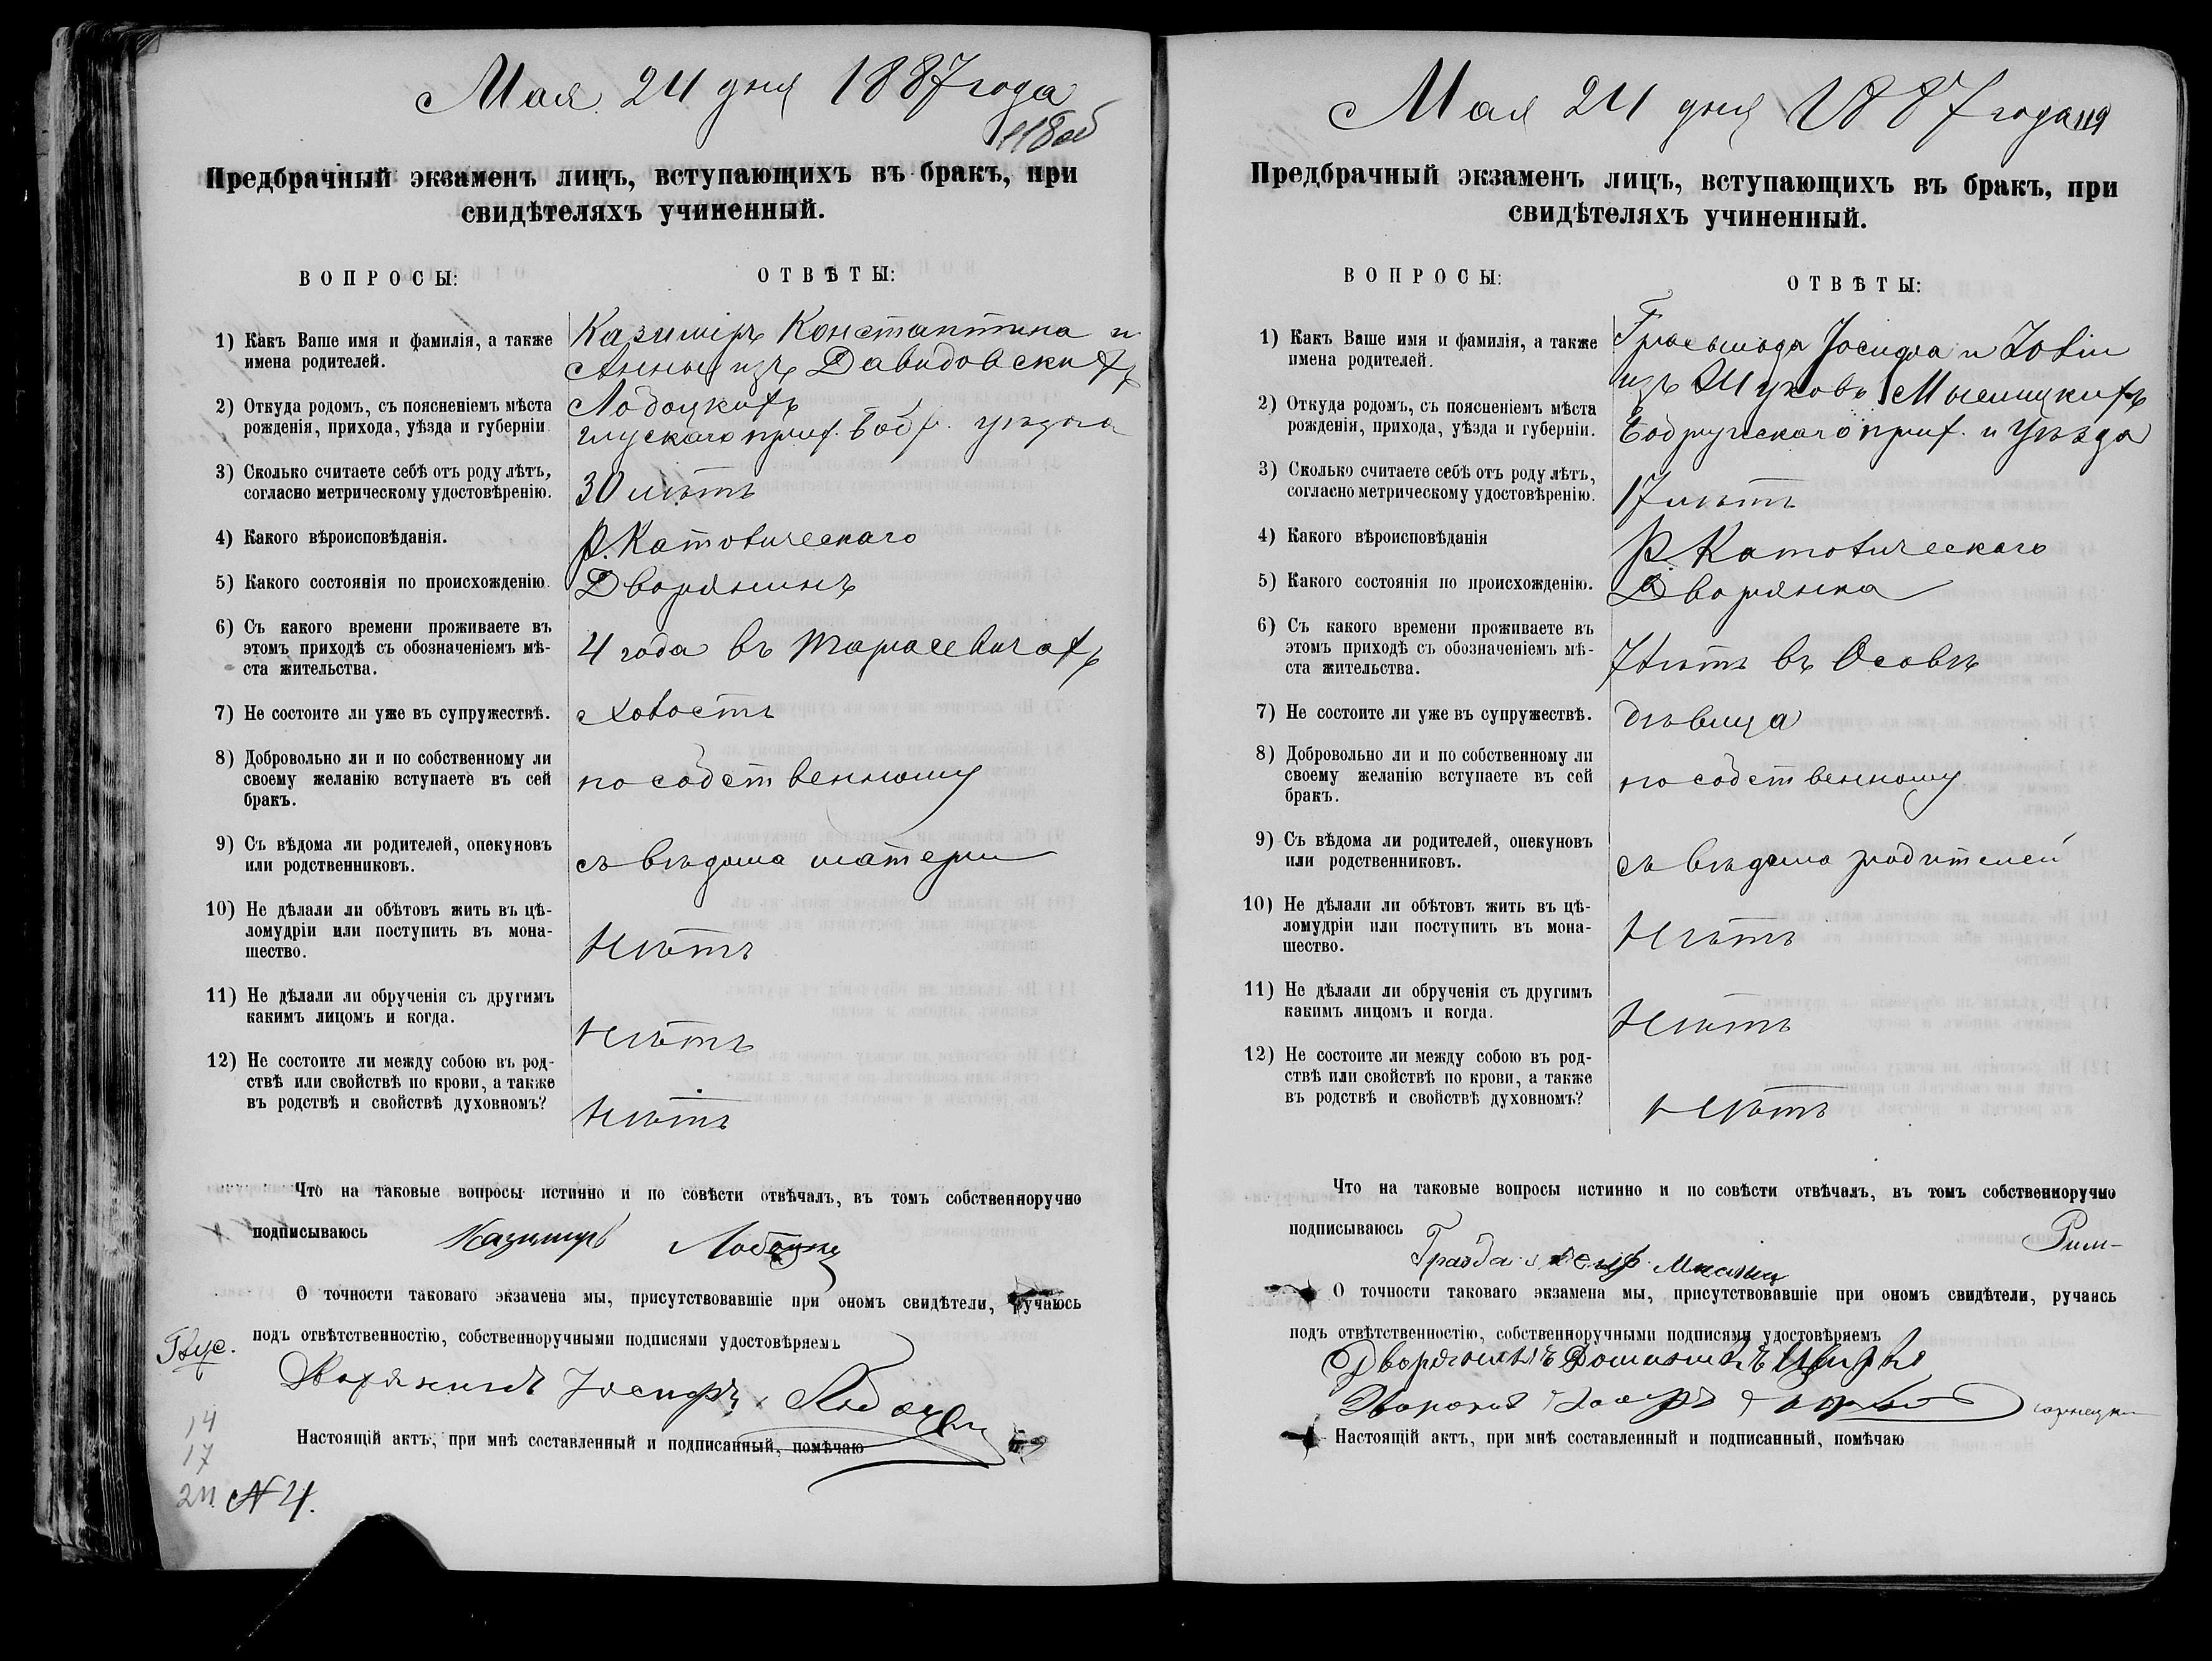 Мая 24 дня 1887 года
118об
Предбрачный экзаменъ лицъ, вступающихъ въ бракъ, при
свидѣтеляхъ учиненный.
ВОПРОСЫ:
ОТВѢТЫ:
1) Какъ Ваше имя и фамилія, а также
имена родителей.
Казиміръ Константина и
Анны изъ Давидовскихъ
Лобоцкихъ
2) Откуда родомъ, съ поясненіемъ мѣста
рожденія, прихода, уѣзда и губерніи
глускаго прих. Бобр. уѣзда
3) Сколько считаете себѣ отъ роду лѣтъ,
согласно метрическому удостовѣренію.
30 лѣтъ
4) Какого вѣроисповѣданія.
Р. Католическаго
5) Какого состоянія по происхожденію
Дворянинъ
6) Съ какого времени проживаете въ
этомъ приходѣ съ обозначеніемъ мѣ-
ста жительства.
4 года въ Тарасевичахъ
7) Не состоите ли уже въ супружествѣ.
холостъ
8) Добровольно ли и по собственному ли
своему желанію вступаете въ сей
бракъ.
по собственному
9) Съ вѣдома ли родителей, опекуновъ
или родственниковъ.
съ вѣдома матери
10) Не дѣлали ли обѣтовъ жить въ цѣ-
ломудріи или поступить въ мона-
шество.
Нѣтъ
11) Не дѣлали ли обрученія съ другимъ
какимъ лицомъ и когда.
Нѣтъ
12) Не состоите ли между собою въ род-
ствѣ или свойствѣ по крови, а также
въ родствѣ и свойствѣ духовномъ?
Нѣтъ
Что на таковые вопросы истинно и по совѣсти отвѣчалъ, въ томъ собственноручно
подписываюсь Казимиръ
О точности таковаго экзамена мы, присутствовавшіе при ономъ свидѣтели, ручаюсь
подъ отвѣтственностію, собственноручными подписями удостовѣряемъ
Глус.
Дворянинъ Іосифъ
Настоящій актъ, при мнѣ составленный и подписанный, помѣчаю
14
17
24 N 4.
Мая 24 дня 1887 года
119
Предбрачный экзаменъ лицъ, вступающихъ въ бракъ, при
свидѣтеляхъ учиненный.
ВОПРОСЫ:
ОТВѢТЫ:
1) Какъ Ваше имя и фамилія, а также
имена родителей.
Іосифа и Зофіи
изъ Жуковъ Мыслицкихъ
2) Откуда родомъ, съ поясненіемъ мѣста
рожденія, прихода, уѣзда и губерніи.
Бобруйскаго прих. и уѣзда
3) Сколько считаете себѣ отъ роду лѣтъ,
согласно метрическому удостовѣренію.
17 лѣтъ
4) Какого вѣроисповѣданія
Р. Католическаго
5) Какого состоянія по происхожденію.
Дворянка
6) Съ какого времени проживаете въ
этомъ приходѣ съ обозначеніемъ мѣ-
ста жительства.
7 лѣтъ въ Осовѣ
7) Не состоите ли уже въ супружествѣ.
дѣвица
8) Добровольно ли и по собственному ли
своему желанію вступаете въ сей
бракъ.
по собственному
9) Съ вѣдома ли родителей, опекуновъ
или родственниковъ.
съ вѣдома родителей
10) Не дѣлали ли обѣтовъ жить въ цѣ-
ломудріи или поступить въ мона-
шество.
Нѣтъ
11) Не дѣлали ли обрученія съ другимъ
какимъ лицомъ и когда.
Нѣтъ
12) Не состоите ли между собою въ род-
ствѣ или свойствѣ по крови, а также
въ родствѣ и свойствѣ духовномъ?
Нѣтъ
Что на таковые вопросы истинно и по совѣсти отвѣчалъ, въ томъ собственноручно
подписываюсь
О точности таковаго экзамена мы, присутствовавшіе при ономъ свидѣтели, ручаясь
подъ отвѣтственностію, собственноручными подписями удостовѣряемъ
Настоящій актъ, при мнѣ составленный и подписанный, помѣчаю